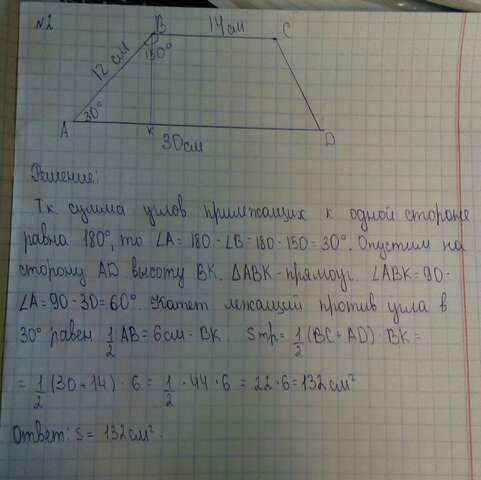 N2
B 14см C
12 см
150°
30°
A K D
30см
Решение:
Т.к сумма углов прилежащих к одной стороне
равна 180°, то ∠A = 180 - ∠B = 180 - 150 = 30°. Опустим на
сторону AD высоту BK. ΔABK - прямоуг. ∠ABK = 90 -
∠A = 90 - 30 = 60°. Катет лежащий против угла в
30° равен 1/2 AB = 6см - BK. Sтр. = 1/2 (BC + AD) · BK =
= 1/2 (30 + 14) · 6 = 1/2 · 44 · 6 = 22 · 6 = 132 см²
Ответ: S = 132 см².